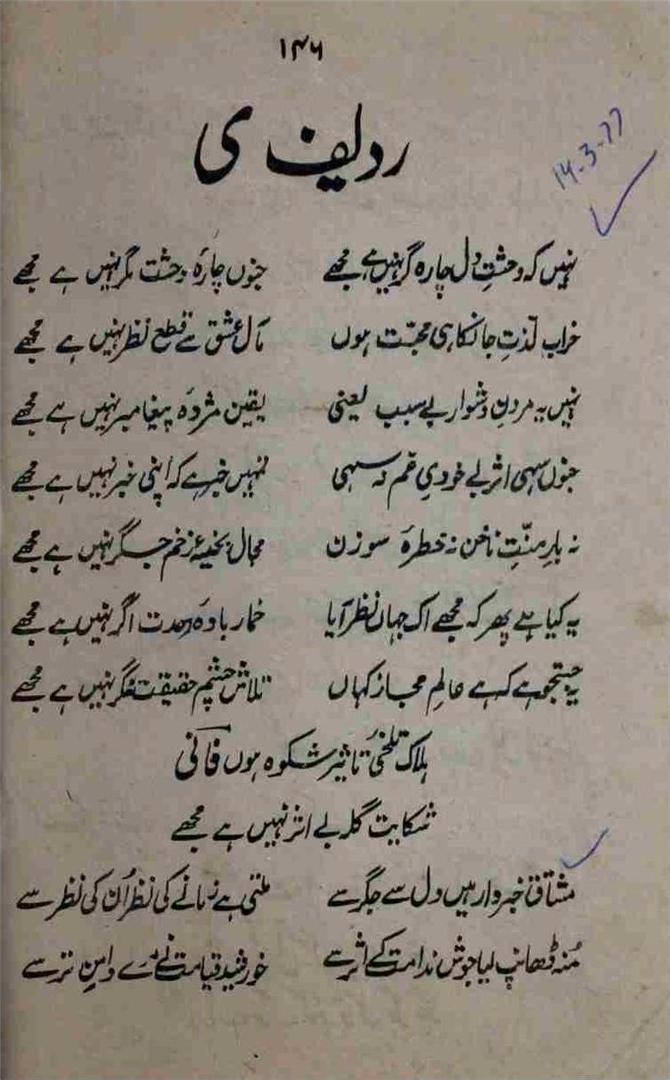 ۱۴۶
ردیف ی
14-3-77
نہیں کہ وحشتِ دل چارہ گر نہیں ہے مجھے جنوں چارۂ وحشت مگر نہیں ہے مجھے
خرابِ لذتِ جانکاہیِ محبّت ہوں مآلِ عشق سے قطعِ نظر نہیں ہے مجھے
نہیں یہ مردنِ دشوار بے سبب یعنی یقینِ مژدۂ پیغامبر نہیں ہے مجھے
جنوں سہی اثرِ بے خودیِ غم نہ سہی تمہیں خبر ہے کہ اپنی خبر نہیں ہے مجھے
نہ بارِ منّتِ ناخن نہ خطرۂ سوزن مجالِ بخیۂ زخمِ جگر نہیں ہے مجھے
یہ کیا ہے پھر کہ مجھے اک جہاں نظر آیا خمارِ بادۂ وحدت اگر نہیں ہے مجھے
یہ جستجو ہے کہ ہے عالمِ مجاز کہاں تلاشِ چشمِ حقیقت نگر نہیں ہے مجھے
ہلاکِ تلخیِ تاثیرِ شکوہ ہوں فانیؔ
شکایتِ گلۂ بے اثر نہیں ہے مجھے
مشتاق خبردار ہیں دل سے جگر سے ملتی ہے زمانے کی نظر اُن کی نظر سے
مُنہ ڈھانپ لیا جوشِ ندامت کے اثر سے خورشیدِ قیامت نے مرے دامنِ تر سے